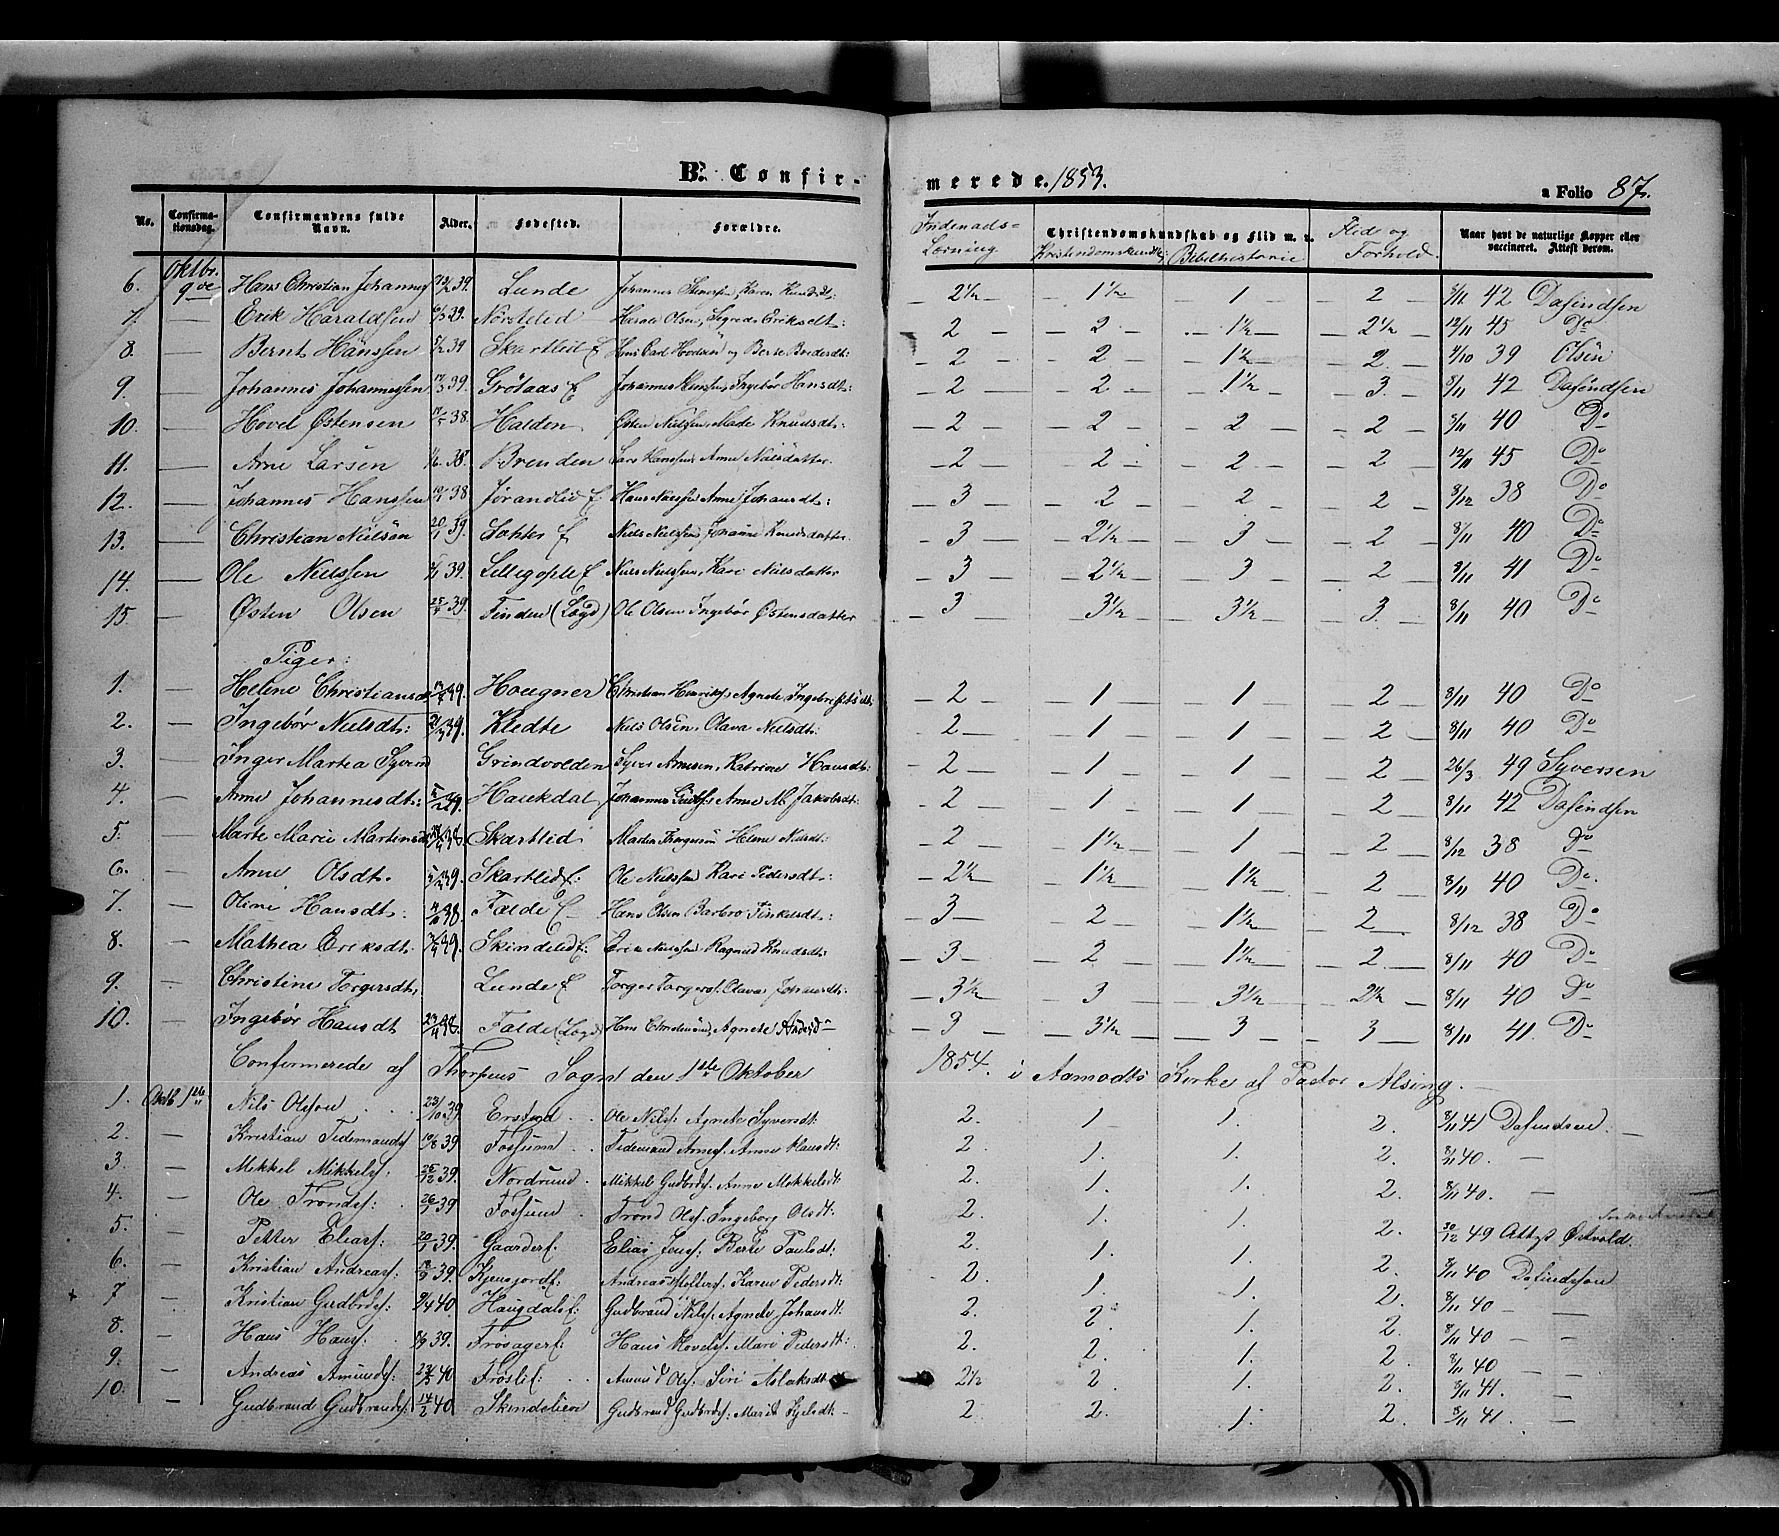 B. Confir-merede. 1853. a Folio 87.
No. Confirma-tionsdag. Confirmandens fulde Navn. Alder. Fødested. Forældre. Indenads-Læsning Christendomskundskab og Flid m. v. Kristendomskundsk: Bibelhistorie Flid og Forhold Naar havt de naturlige Kopper eller vaccineret. Attest derom.
6. Oktbr. 9de Hans Christian Johannes 39. Lunde Johannes Karen 2½ 1½ 1 2 42 Dafindsen
7. Erik Haraldsen 29. Nordslid Harald Olsen, Sigrid Eriksdt: 2 2 1½ 2½ 12/11 45 Do
8. Bernt Hanssen 39 Skartlid E og Berte 2 2 1½ 2 39 Olsen
9. Johannes Johannessen 39. Grötaas E Johannes Ingebør Hansdt: 2 2 1½ 3 8/11 42 Dafindsen
10. Hovel Østensen 38. Halden Østen Nielsen, Knudsdt: 2 2 2 2 40 Do
11. Arne Larsen 38. Brenden Lars Hanssen, Anne Nielsdatter 2 2 2 2 12/11 45 Do
12. Johannes Hanssen 38 Jørandlid E Hans Nielsen, Anne Johansdt: 3 2 2 2 8/12 38 Do
13. Christian Nielsen 39. E Niels Nielssen, Johanne Knudsdatter 3 2½ 3 2 8/11 40 Do
14. Ole Nielssen 39. E Niels Nielssen, Kari Nielsdatter 3 2½ 3 2 8/11 41 Do
15. Østen Olsen 39. Finden (Lægd) Ole Olsen Ingebør Østensdatter 3 3½ 3½ 3. 8/11 40 Do
Piger:
1. Helene Christiansdt 39. Hougner Christian Agnete 2 1 1 2 8/11 40 Do
2. Ingebør Nielsdt: 39. Kledte Niels Olsen, Olava Nielsdt: 2 1 1 2 8/11 40 Do
3. Inger Martea Grindvolden Syver Arnesen, Katrine Hansdt: 2 1 1 2 26/3 49 Syversen
4. Anne Johannesdt: 39. Haukdal Johannes Anne M. Jakobsdt: 2 1 1 2 8/11 42 Dafindsen
5. Marte Marie Martinsdt 38 Skartlid Martin Helene Nielsdt: 2 1½ 1 2 8/12 38 Do
6. Anne Olsdt. 39. Skartlid E: Ole Nielssen Kari Pedersdt: 2½ 1½ 1½ 2 8/11 40 Do.
7. Oline Hansdt: 38. Falde E Hans Olsen Barbro 3 2 1½ 2 8/12 38 Do
8. Mathea Eriksdt. 39. Skindelid E: Erik Nielssen Ragnild Knudsdt: 3 2 1½ 2 8/11 40 Do
9. Christine Torgersdt, Lunde E Torger Torgers. Olava Johansdt: 3½ 3 3½ 2½ 8/11 40 Do
10. Ingebør Hansdt 38. Falde (Lægd) Hans Christensen, Agnete Andersd 3 3½ 3 3 8/11 41. Do
Confirmerede af Thorpens Sogn den 1ste Oktober 1854. i Aamodts Kirke af Pastor Alsing.
1. Oktb 1ste Nils Olsen 23/10 39 Erstad Ole Nilsf. Agnete Syversdt: 2. 1 1. 2. 8/11 41 Dafindsen.
2. Kristian Tidemandsf 10/8 39 Fossum Tidemand Arnesf. Anne Hansdt: 2. 1. 1. 2. 8/11 40.
3. Mikkel Mikkelsf. 25/12 39. Nordrund Mikkel Gudbrdsf. Anne Mikkelsdt: 2. 1. 1. 2. 8/11 40.
4. Ole Trondsf. 26/7 39 Fossum Trond Olsf. Ingeborg Olsdt: 2. 1. 1. 2. 30/12 49 Attest Østvold.
5. Petter Eliasf. 20/1 39. Gaarder f. Elias Jensf. Berte Paulsdt: 2. 1. 1. 2. 8/11 40 Dafindsen
6. Kristian Andreasf. 39. Andreas Karen Pedersdt: 2. 1. 1. 2. 8/11 40
7. Kristian Gudbrdsf: 9/4 40. Haugdals f. Gudbrand Nilsf. Agnete Johansdt: 2. 2. 1. 2. 8/11 40
8. Hans Hansf. 39. Frøsager f. Hans Hovelsf. Mari Pedersdt: 2. 2. 1. 2. 8/11 40
9. Andreas Amundsf. 40 Frøslie f. Amund Olsf. Siri Aslaksdt: 2½ 2. 1. 2. 8/11 41.
10. Gudbrand Gudbrandsf. 14/2 40. Skindelien Gudbrand Gudbrdsf. Marit 2. 2. 1. 2. 8/11 41.